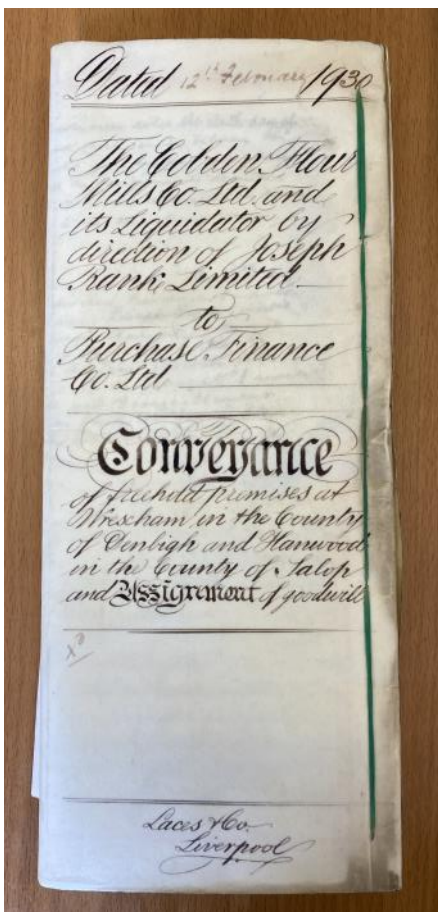 Dated 12th February 1930
The Cobden Flour
Mills Co. Ltd. and
its Liquidator by
direction of Joseph
Rank Limited
to
Purchase Finance
Co. Ltd
Conveyance
of freehold premises at
Wrexham in the County
of Denbigh and Hanwood
in the County of Salop
and Assignment of goodwill
Laces & Co.
Liverpool